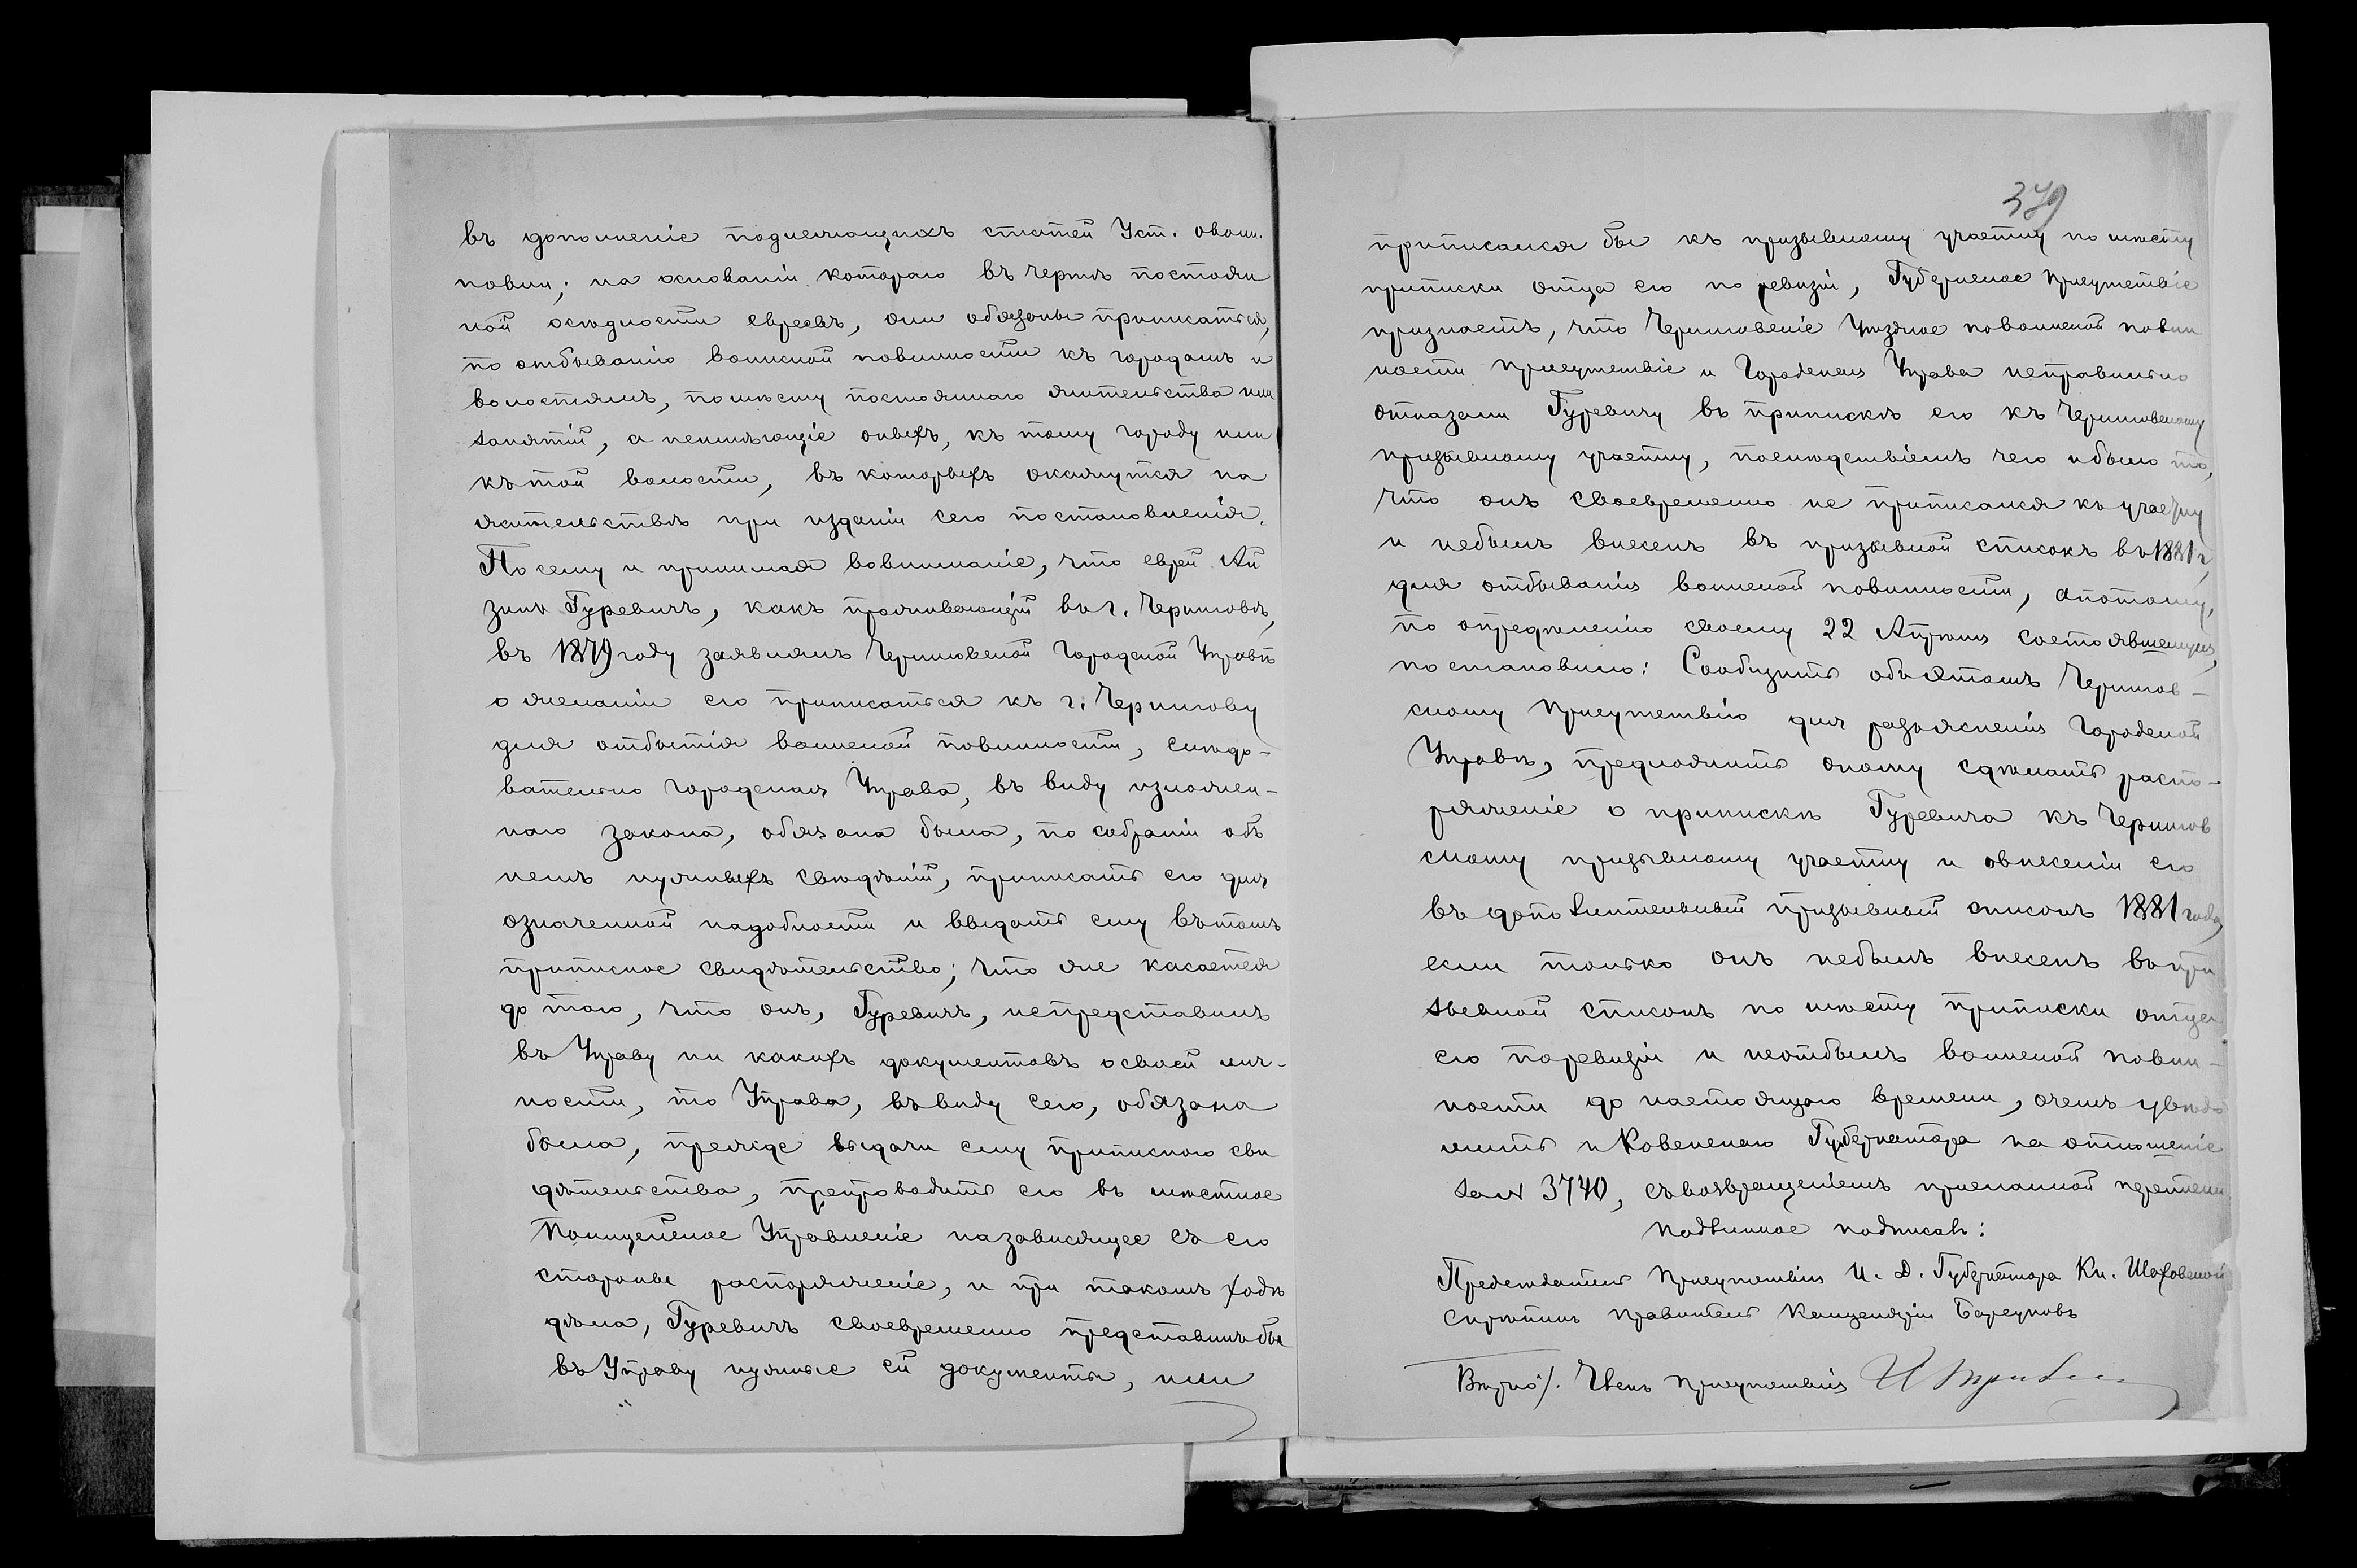 въ дополненіе подлежащихъ статей Уст. овоин.
повин; на основаніи котораго въ чертѣ постоян
ной осѣдлости евреевъ, они обязаны приписаться,
по отбыванію воинской повинности къ городамъ и
волостямъ, помѣсту постояннаго жительства или
занятій, а неимѣющіе оныхъ, къ тому городу или
кътой волости, въ которыхъ окажутся на
жительствѣ при изданіи сего постановленія.
По сему и принимая вовниманіе, что еврей Ай
зикъ Гуревичъ, какъ проживающій въ г. Черниговѣ,
въ 1879 году заявлялъ Черниговской Городской Управѣ
о желаніи его приписаться къ г. Чернигову
для отбытія воинской повинности, слѣдо-
вательно Городская Управа, въ виду изложен-
наго закона, обязана была, по собраніи объ
немъ нужныхъ свѣдѣній, приписать его для
означенной надобности и выдать ему вътомъ
приписное свидѣтельство; что же касается
до того, что онъ, Гуревичъ, непредставилъ
въ Управу ни какихъ документовъ освоей лич-
ности, то Управа, въвиду сего, обязана
была, прежде выдачи ему приписного сви
дѣтельства, препроводить его въ мѣстное
Полицейское Управленіе назависящее съ его
стороны распоряженіе, и при такомъ ходѣ
дѣла, Гуревичъ своевременно представилъ бы
въ Управу нужные ей документы, или
379
приписался бы къ призывному участку по мѣсту
приписки отца его по ревизіи, Губернское Присутствіе
признаетъ, что Черниговскіе Уѣздное повоинской повин
ности Присутствіе и Городская Управа неправильно
отказали Гуревичу въ припискѣ его къ Черниговскому
призывному участку, послѣдствіемъ чего и было то,
что онъ своевременно не приписался къ участку
и небылъ внесенъ въ призывной списокъ въ 1881 г,
для отбыванія воинской повинности, апотому,
по опредѣленію своему 22 Апрѣля состоявшемуся,
постановило: Сообщить объэтомъ Чернигов-
скому Присутствію для разъясненія Городской
Управѣ, предложить оному сдѣлать распо-
ряженіе о припискѣ Гуревича къ Чернигов
скому призывному участку и овнесеніи его
въ дополнительный призывный списокъ 1881 года,
если только онъ небылъ внесенъ въ при
зывной списокъ по мѣсту приписки отца
его поревизіи и неотбылъ воинской повин-
ности до настоящаго времени, очемъ увѣдо
мить и Ковенскаго Губернатора на отношеніе
за № 3740, съ возвращеніемъ присланной переписки.
Подлинное подписалъ:
Председатель Присутствія И. Д. Губернатора Кн. Шаховской
Скрѣпилъ Правитель Канцеляріи Барсуковъ
Вѣрно: Членъ Присутствія